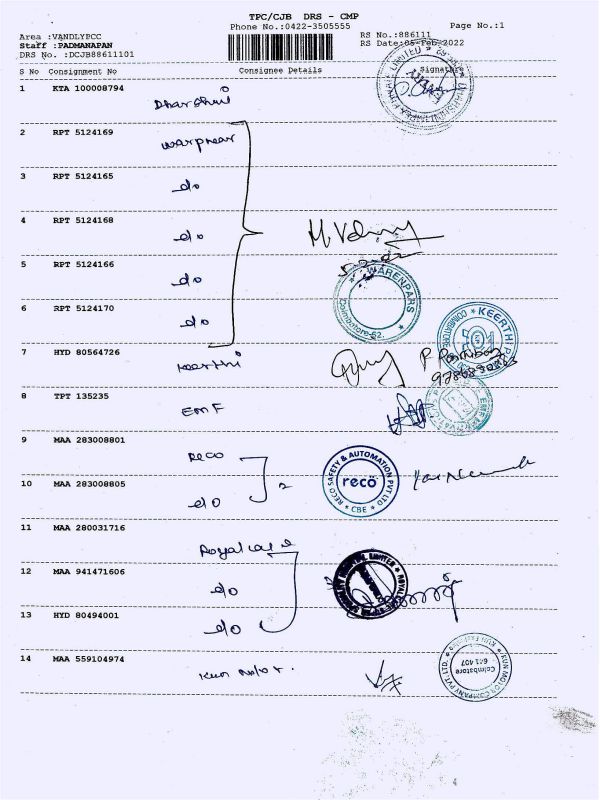 TPC/CJB DRS - CMP
Phone No.:0422-3505555
Page No.:1
Area :VANDLYPCC
RS No.:886111
Staff :PADMANAPAN
RS Date:05-Feb-2022
DRS No. :DCJB88611101
S No Consignment No Consignee Details Signature
1 KTA 100008794
2 RPT 5124169
3 RPT 5124165
do
4 RPT 5124168
do
5 RPT 5124166
do
WARENPARS
Coimbatore-62.
6 RPT 5124170
do
KEERTHI
COIMBATORE
7 HYD 80564726
Keerthi
8 TPT 135235
9 MAA 283008801
Reco
RECO SAFETY & AUTOMATION PVT LTD
recö
CBE
10 MAA 283008805
do
2
11 MAA 280031716
Royal care
12 MAA 941471606
do
13 HYD 80494001
do
14 MAA 559104974
KUN MOTOR COMPANY PVT. LTD.
Coimbatore
641 407